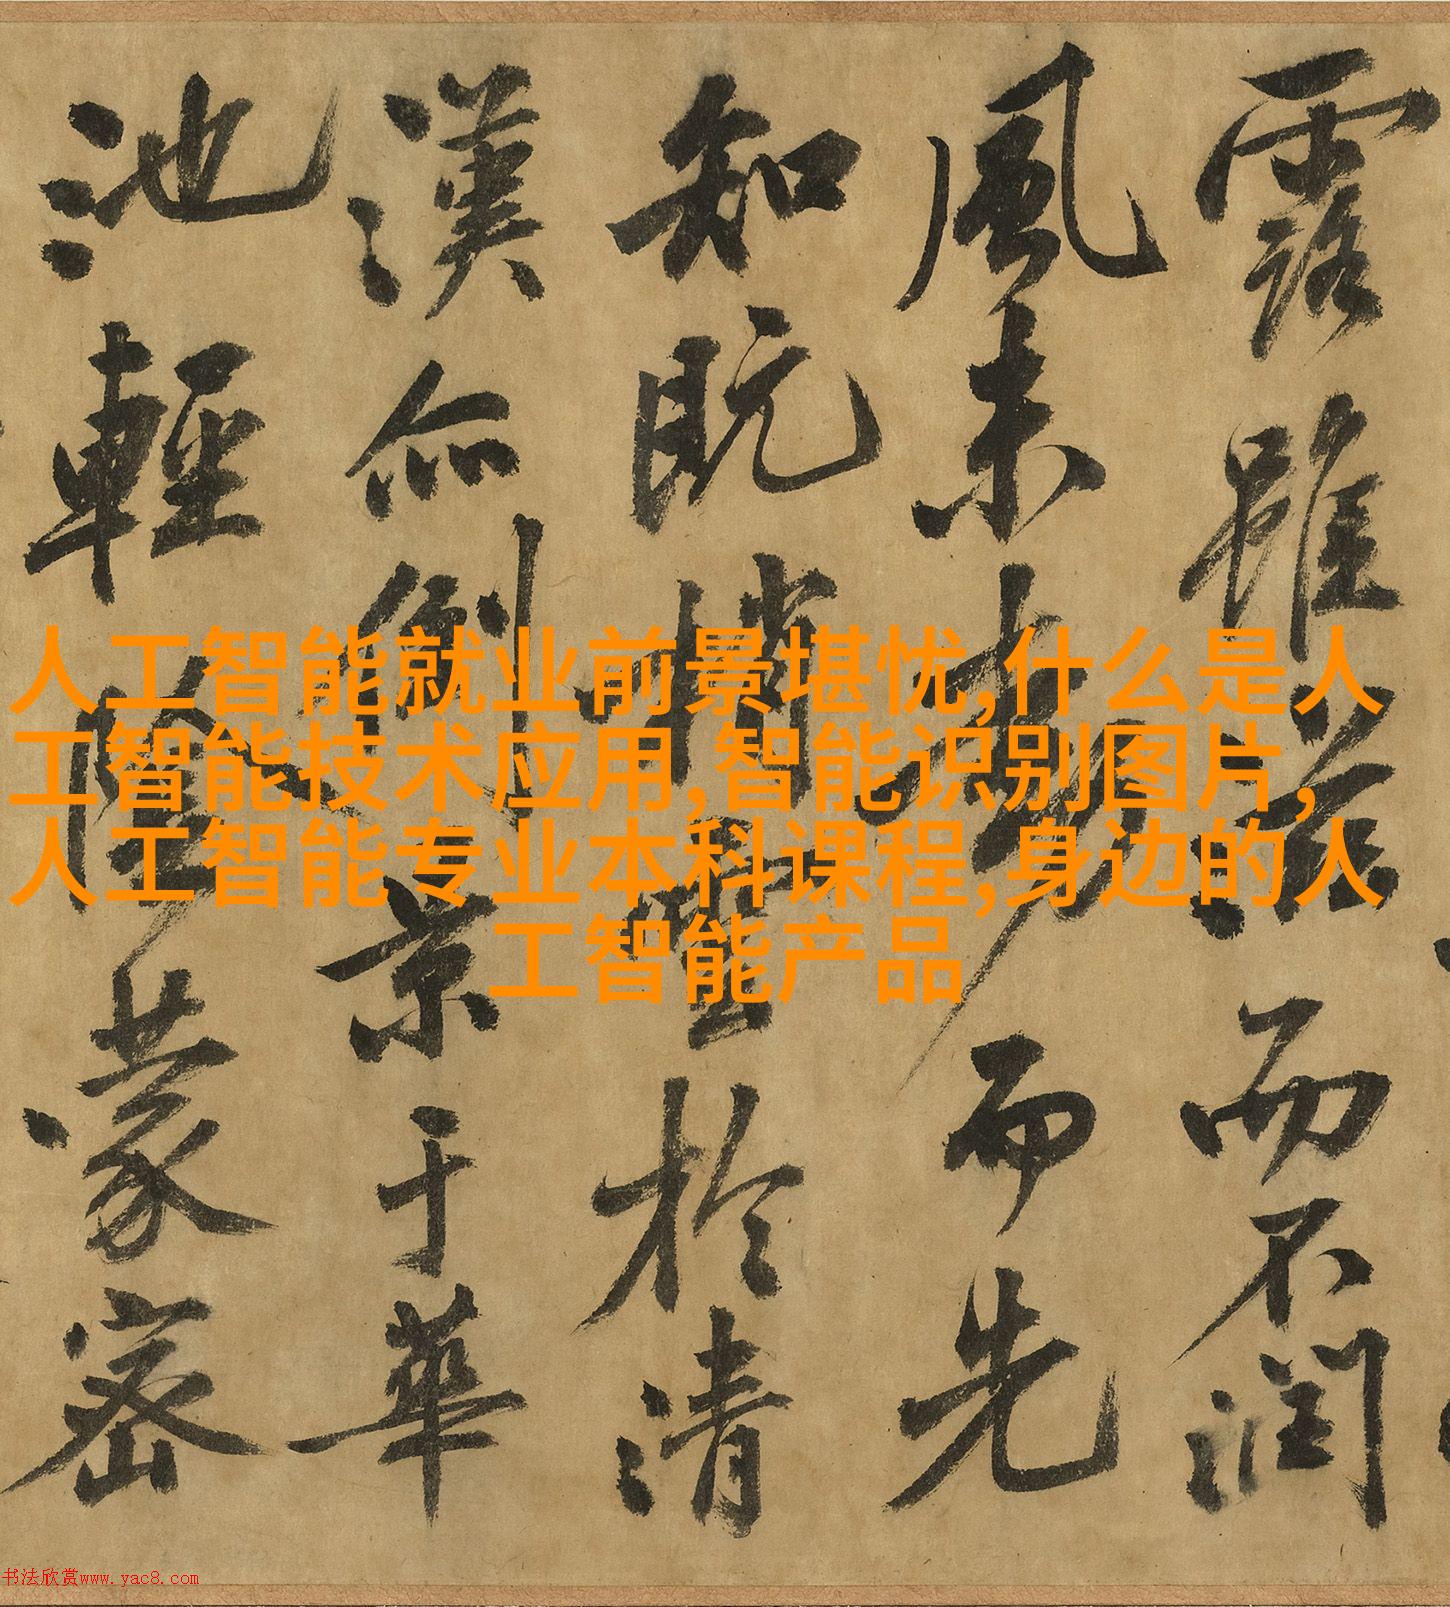 露雖滋而不潤
風未動而先
知既捎雲於清
漢亦倒景于華
池輕陰蒙密
人工智能就业前景堪忧,什么是人
工智能技术应用,智能识别图片,
人工智能专业本科课程,身边的人
工智能产品
书法欣赏www.yac8.com